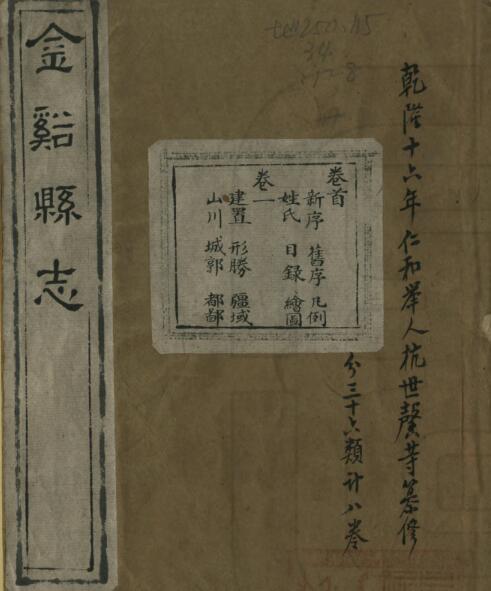 乾隆十六年仁和举人杭世駿等纂修
分三十六類計八卷
卷首
新序 舊序 凡例
姓氏 目錄 繪圖
卷一
建置 形勝 疆域
山川 城郭 都鄙
金谿縣志